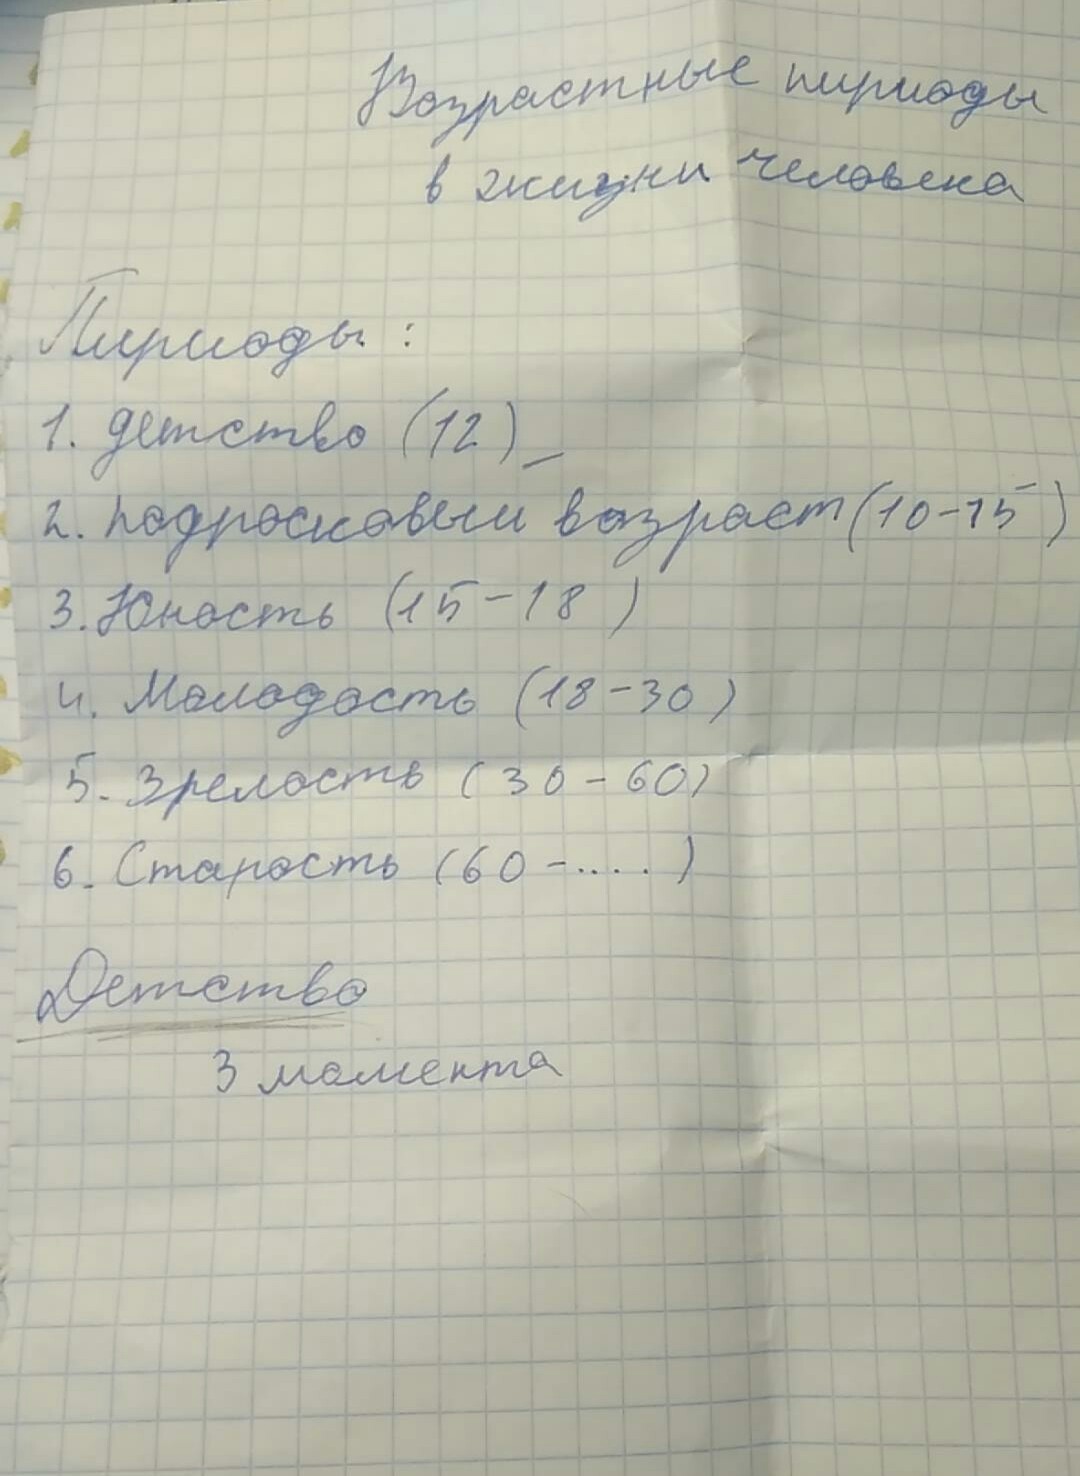 Возрастные периоды
в жизни человека
Периоды:
1. детство (12)_
2. подросковый возраст (10-15)
3. Юность (15-18)
4. Молодость (18-30)
5. Зрелость (30-60)
6. Старость (60-.....)
Детство
3 момента